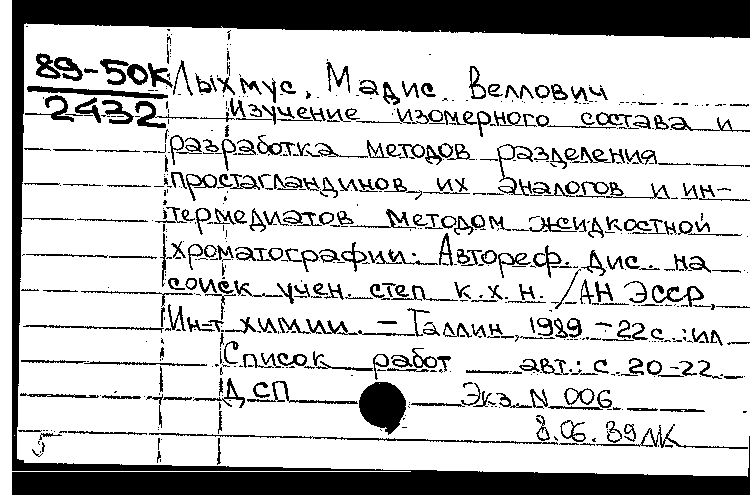 89-50К
2432
Лыхмус, Мадис Веллович
Изучение изомерного состава и
разработка методов разделения
простагландинов, их аналогов и ин-
термедиатов методом жидкостной
хроматографии: Автореф. дис. на
соиск. учен. степ к.х.н. /АН ЭССР,
Ин-т химии. – Таллин, 1989 – 22 с.: ил
Список работ авт.: с. 20-22.
ДСП Экз. N 006
8.06.89 ЛК
5